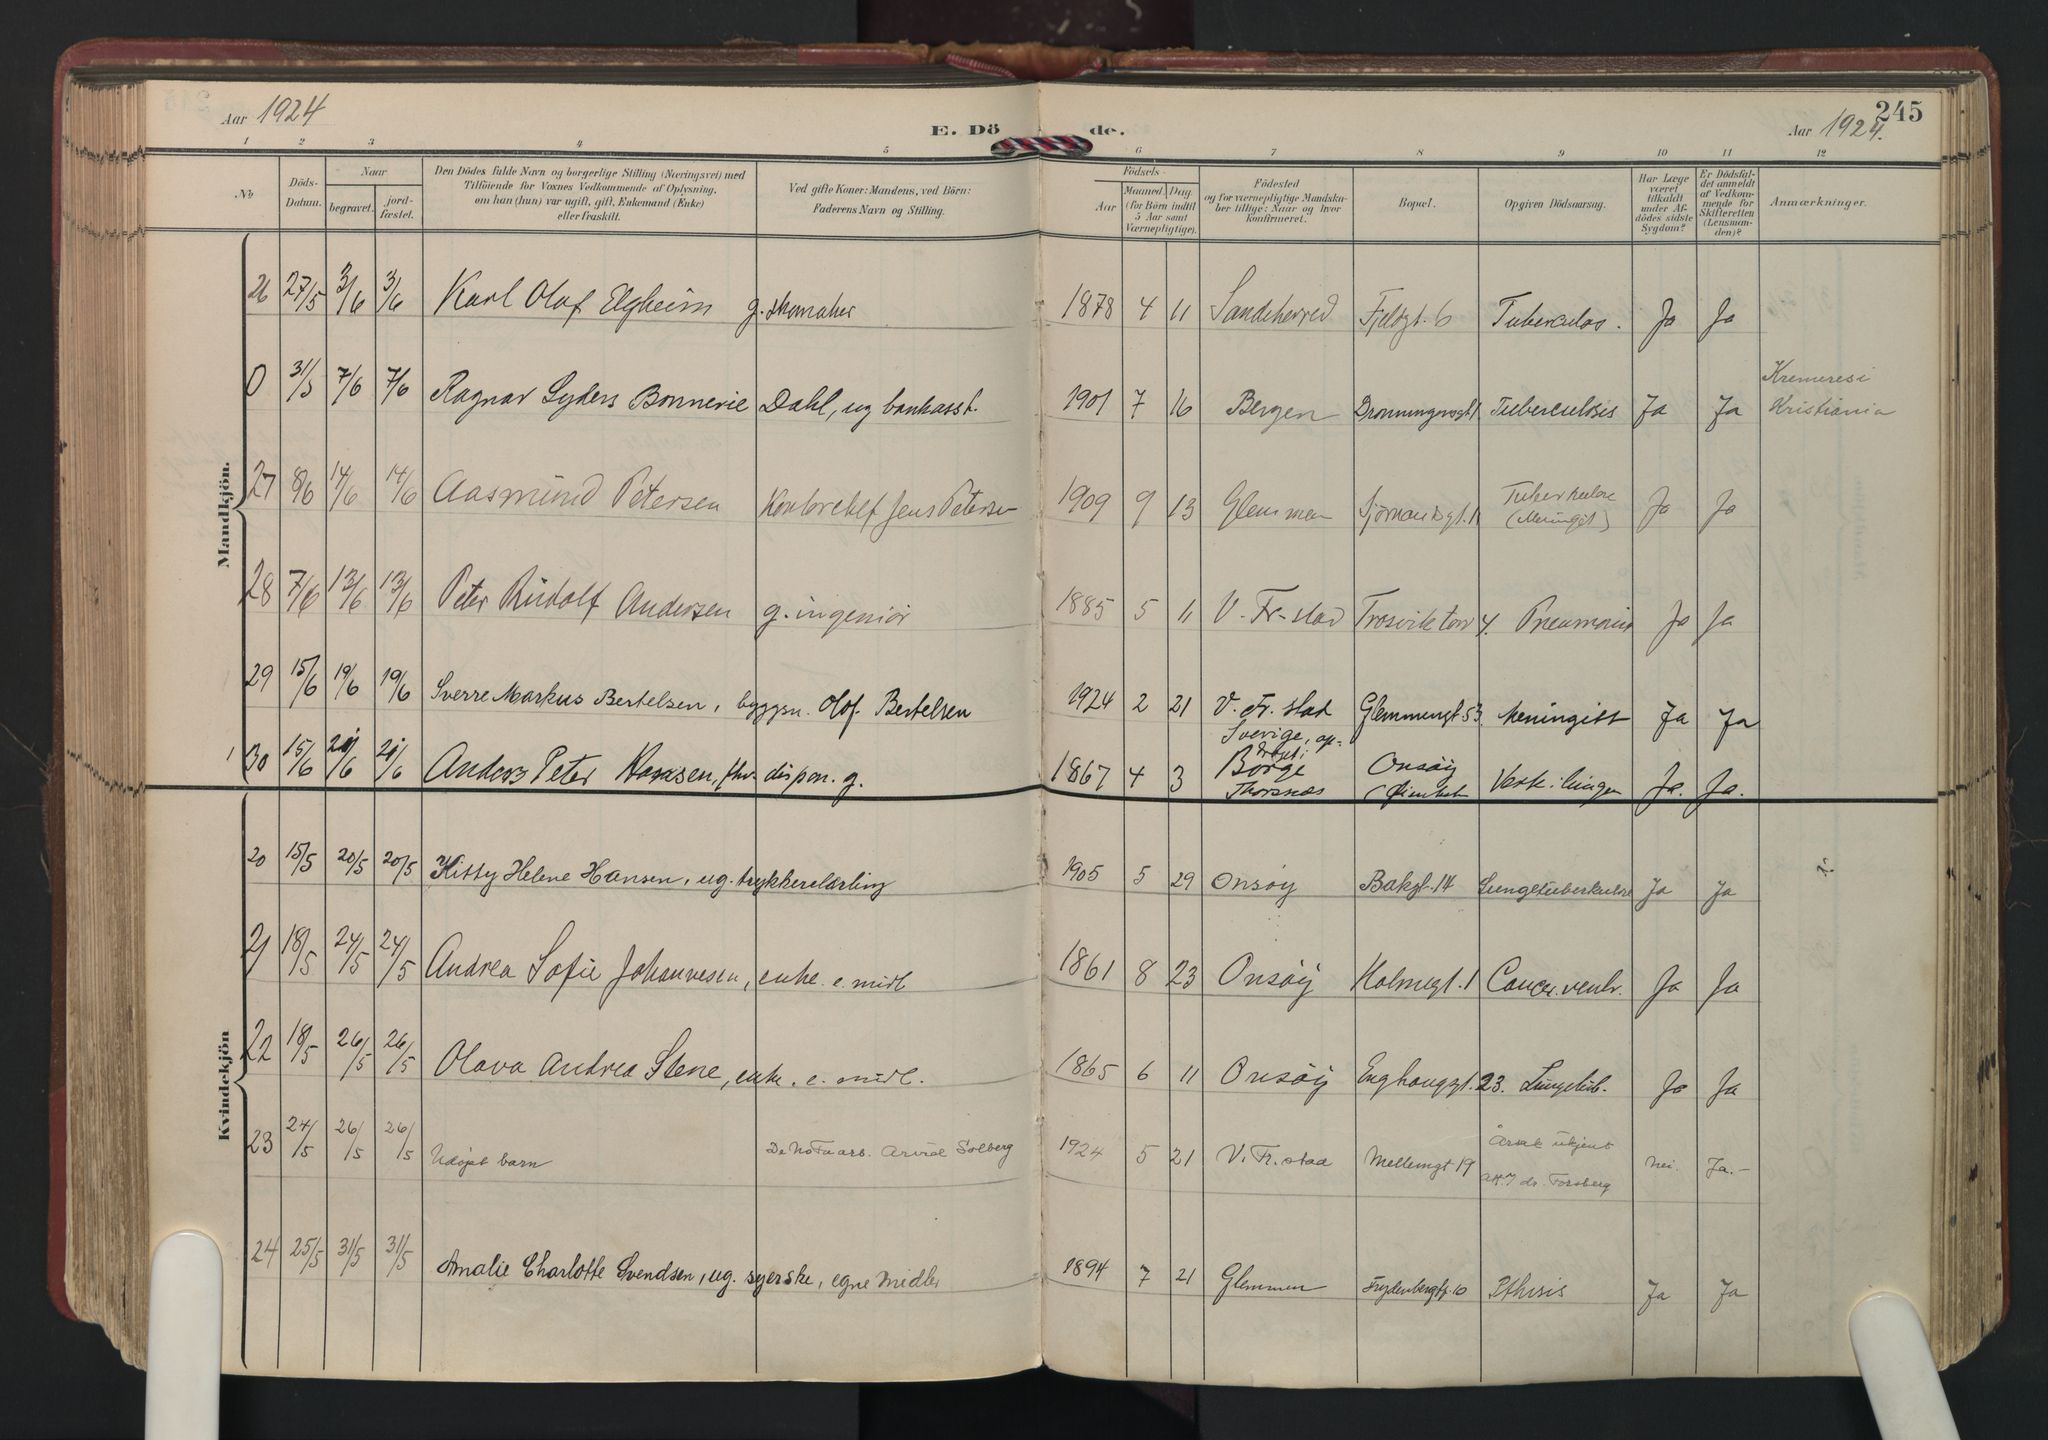 Aar 1924
E. Dö de.
Aar 1924.
245
1 2 3 4 5 6 7 8 9 10 11 12
No
Döds-
Datum.
Naar
begravet.
jord-
fæstet.
Den Dödes fulde Navn og borgerlige Stilling (Næringsvei) med
Tilföiende for Voxnes Vedkommende af Oplysning,
om han (hun) var ugift, gift, Enkemand (Enke)
eller fraskilt.
Ved gifte Koner: Mandens, ved Börn:
Faderens Navn og Stilling.
Födsels-
Aar
Maaned. Dag.
(for Börn indtil
5 Aar samt
Værnepligtige).
Födested
og for værnepligtige Mandska-
ber tillige: Naar og hvor
konfirmeret.
Bopæl.
Opgiven Dödsaarsag.
Har Læge
været
tilkaldt
under Af-
dödes sidste
Sygdom?
Er Dödsfal-
det anmeldt
af Vedkom-
mende for
Skifteretten
(Lensman-
den)?
Anmærkninger.
Mandkjön.
26 27/5 3/6 3/6 Karl Olaf Elgheim g. skomaker 1878 4 11 Sandeherred Fjeldgt. 6 Tuberculos. Ja Ja
0 31/5 7/6 7/6 Ragnar Lyders Bonnevie Dahl, ug bankasst. 1901 7 16 Bergen Tuberculosis Ja Ja Kremeres i
Kristiania
27 8/6 14/6 14/6 Aasmund Petersen Jens Petersen 1909 9 13 Glemmen Tuberkulose
(Meningit) Ja Ja
28 7/6 13/6 13/6 Peter Rudolf Andersen g. ingeniör 1885 5 11 V. Fr-stad 4. Pneumoni Ja Ja
29 15/6 19/6 19/6 Sverre Markus Bertelsen, byggsn. Olof Bertelsen 1924 2 21 V. Fr. stad Glemmengt 53. Meningitt Ja Ja
30 15/6 21/6 21/6 Anders Peter Hansen, fhv. dispon. g. 1867 4 3 Sverige,
Borge
Thorsnæs Onsöy Ja. Ja.
Kvindekjön
20 15/5 20/5 20/5 Kitty Helene Hansen, ug. trykkerelærling 1905 5 29 Onsöy Bakgt. 14 Lungetuberkulose Ja Ja
21 18/5 24/5 24/5 Andrea Sofie Johannesen, enke e. midl 1861 8 23 Onsöy Holmegt. 1 Cancer. ventr. Ja Ja
22 18/5 26/5 26/5 Olava Andrea Stene, enke. e. midl. 1865 6 11 Onsöy Enghauggt. 23. Lungetub. Ja Ja
23 24/5 26/5 26/5 Udöpt barn Arvid Solberg 1924 5 21 V. Fr. stad Mellemgt 19 Årsak ukjent
att. dr. Forsberg nei. Ja.-
24 25/5 31/5 31/5 Amalie Charlotte Svendsen, ug. syerske, egne midler 1894 7 21 Glemmen Frydenberggt. 10 Pthisis Ja Ja